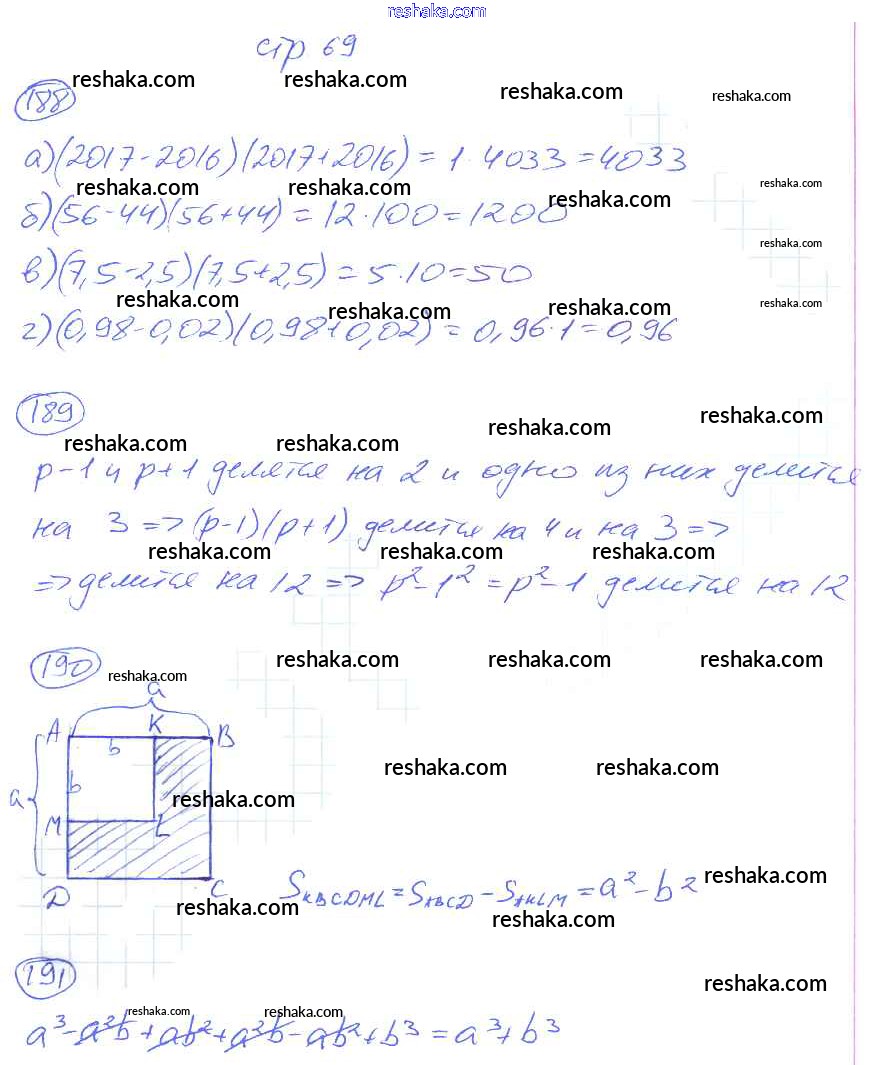 reshaka.com
стр 69
reshaka.com reshaka.com reshaka.com reshaka.com
188
а) (2017-2016)(2017+2016) = 1·4033 = 4033
reshaka.com reshaka.com reshaka.com reshaka.com
б) (56-44)(56+44) = 12·100 = 1200
reshaka.com
в) (7,5-2,5)(7,5+2,5) = 5·10 = 50
reshaka.com reshaka.com reshaka.com reshaka.com
г) (0,98-0,02)(0,98+0,02) = 0,96·1 = 0,96
189
reshaka.com reshaka.com reshaka.com reshaka.com
p-1 и p+1 делятся на 2 и одно из них делится
на 3 => (p-1)(p+1) делится на 4 и на 3 =>
reshaka.com reshaka.com reshaka.com
=> делится на 12 => p²-1² = p²-1 делится на 12
190
reshaka.com reshaka.com reshaka.com reshaka.com
a
A K B
b
reshaka.com reshaka.com
b
a
reshaka.com
M L
D C
S KBCDML = S ABCD - S AKLM = a² - b²
reshaka.com
reshaka.com reshaka.com
191
reshaka.com
reshaka.com reshaka.com
a³ - a²b + ab² + a²b - ab² + b³ = a³ + b³